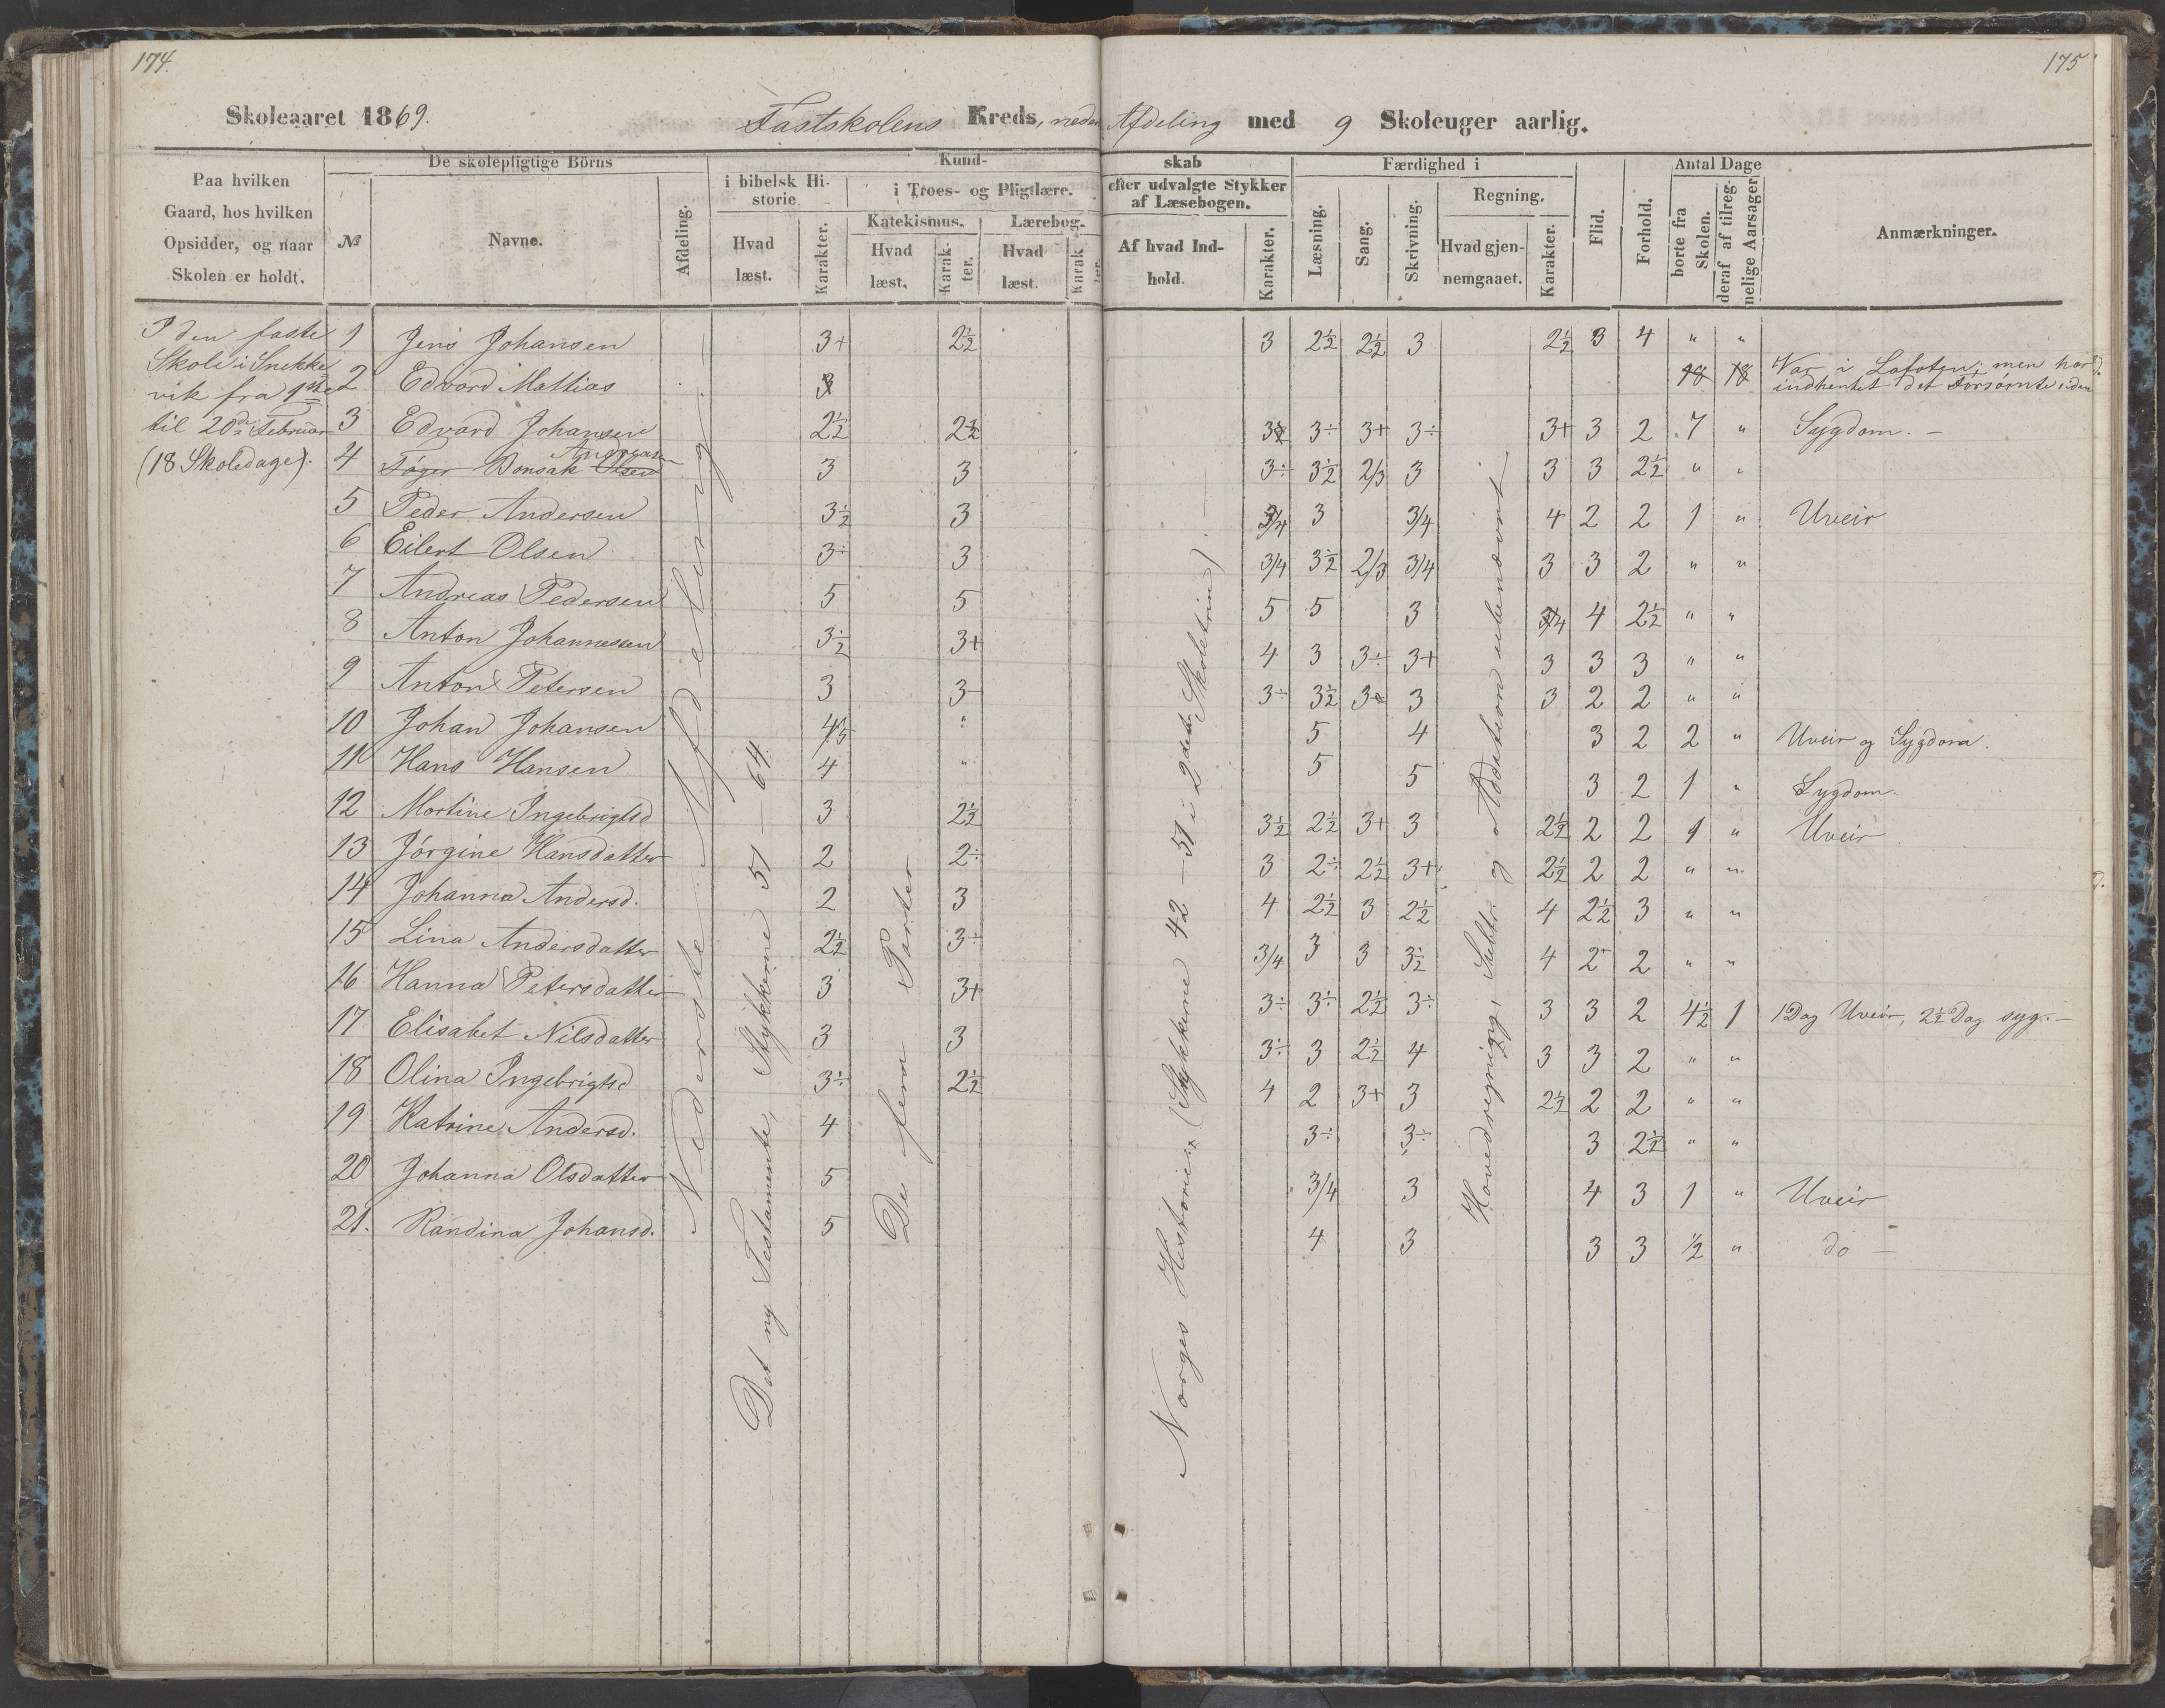 174.
175
Skoleaaret 1869.
Fastskolens Kreds, neder Afdeling med 9 Skoleuger aarlig.
Paa hvilken Gaard, hos hvilken Opsidder, og naar Skolen er holdt.
De skolepligtige Börns
№
Navne.
Afdeling.
Kundskab
i bibelsk Historie
Hvad læst.
Karakter.
i Troes- og Pligtlære.
Katekismus.
Hvad læst.
Karakter.
Lærebog.
Hvad læst.
Karakter.
efter udvalgte Stykker af Læsebogen.
Af hvad Indhold.
Karakter.
Færdighed i
Læsning.
Sang.
Skrivning.
Regning.
Hvad gjennemgaaet.
Karakter.
Flid.
Forhold.
Antal Dage
borte fra Skolen.
deraf af tilregnelige Aarsager
Anmærkninger.
I den faste
Skole i Snekke
vik fra 1ste
til 20de Februar
(18 Skoledage).
Nederste Afdeling
Det ny Testamente, Stykkerne 51 — 64.
De fem Parter
Norges Historie (Stykkerne 42 — 51 i 2det Skoletrin).
Hovedregning, Subtr. og Addition ubenævnt
1 Jens Johansen 3+ 2½ 3 2½ 2½ 3 2½ 3 4 " "
2 Edvard Mattias 3 18 18 Var i Lofoten; men har indhentet det Forsømte siden
3 Edvard Johansen 2½ 2½ 3 3÷ 3+ 3÷ 3+ 3 2 7 " Sygdom. —
4 Tøger Bonsak Olsen Andreasen 3 3 3÷ 3½ 2/3 3 3 3 2½ " "
5 Peder Andersen 3½ 3 3/4 3 3/4 4 2 2 1 " Uveir
6 Eilert Olsen 3÷ 3 3/4 3½ 2/3 3/4 3 3 2 " "
7 Andreas Pedersen 5 5 5 5 3 3/4 4 2½ " "
8 Anton Johannessen 3½ 3+ 4 3 3÷ 3+ 3 3 3 " "
9 Anton Petersen 3 3- 3÷ 3½ 3 3 3 2 2 " "
10 Johan Johansen 4/5 " 5 4 3 2 2 " Uveir og Sygdom.
11 Hans Hansen 4 " 5 5 3 2 1 " Sygdom.
12 Martine Ingebrigtsd 3 2½ 3½ 2½ 3+ 3 2½ 2 2 1 " Uveir
13 Jörgine Hansdatter 2 2÷ 3 2÷ 2½ 3+ 2½ 2 2 " "
14 Johanna Andersd. 2 3 4 2½ 3 2½ 4 2½ 3 " "
15 Lina Andersdatter 2½ 3÷ 3/4 3 3 3½ 4 2- 2 " "
16 Hanna Petersdatter 3 3+ 3÷ 3÷ 2½ 3÷ 3 3 2 4½ 1 1 Dag Uveir, 2½ Dag syg. —
17 Elisabet Nilsdatter 3 3 3÷ 3 2½ 4 3 3 2 " "
18 Olina Ingebrigtsd 3÷ 2½ 4 2 3+ 3 2½ 2 2 " "
19 Katrine Andersd. 4 3÷ 3÷ 3 2½ " "
20 Johanna Olsdatter 5 3/4 3 4 3 1 " Uveir
21. Randina Johansd. 5 4 3 3 3 ½ " do —